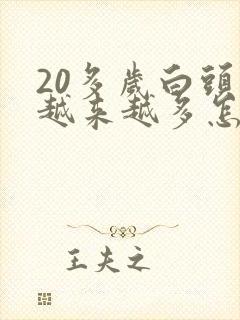 20多歲白頭
越來越多怎
王夫之